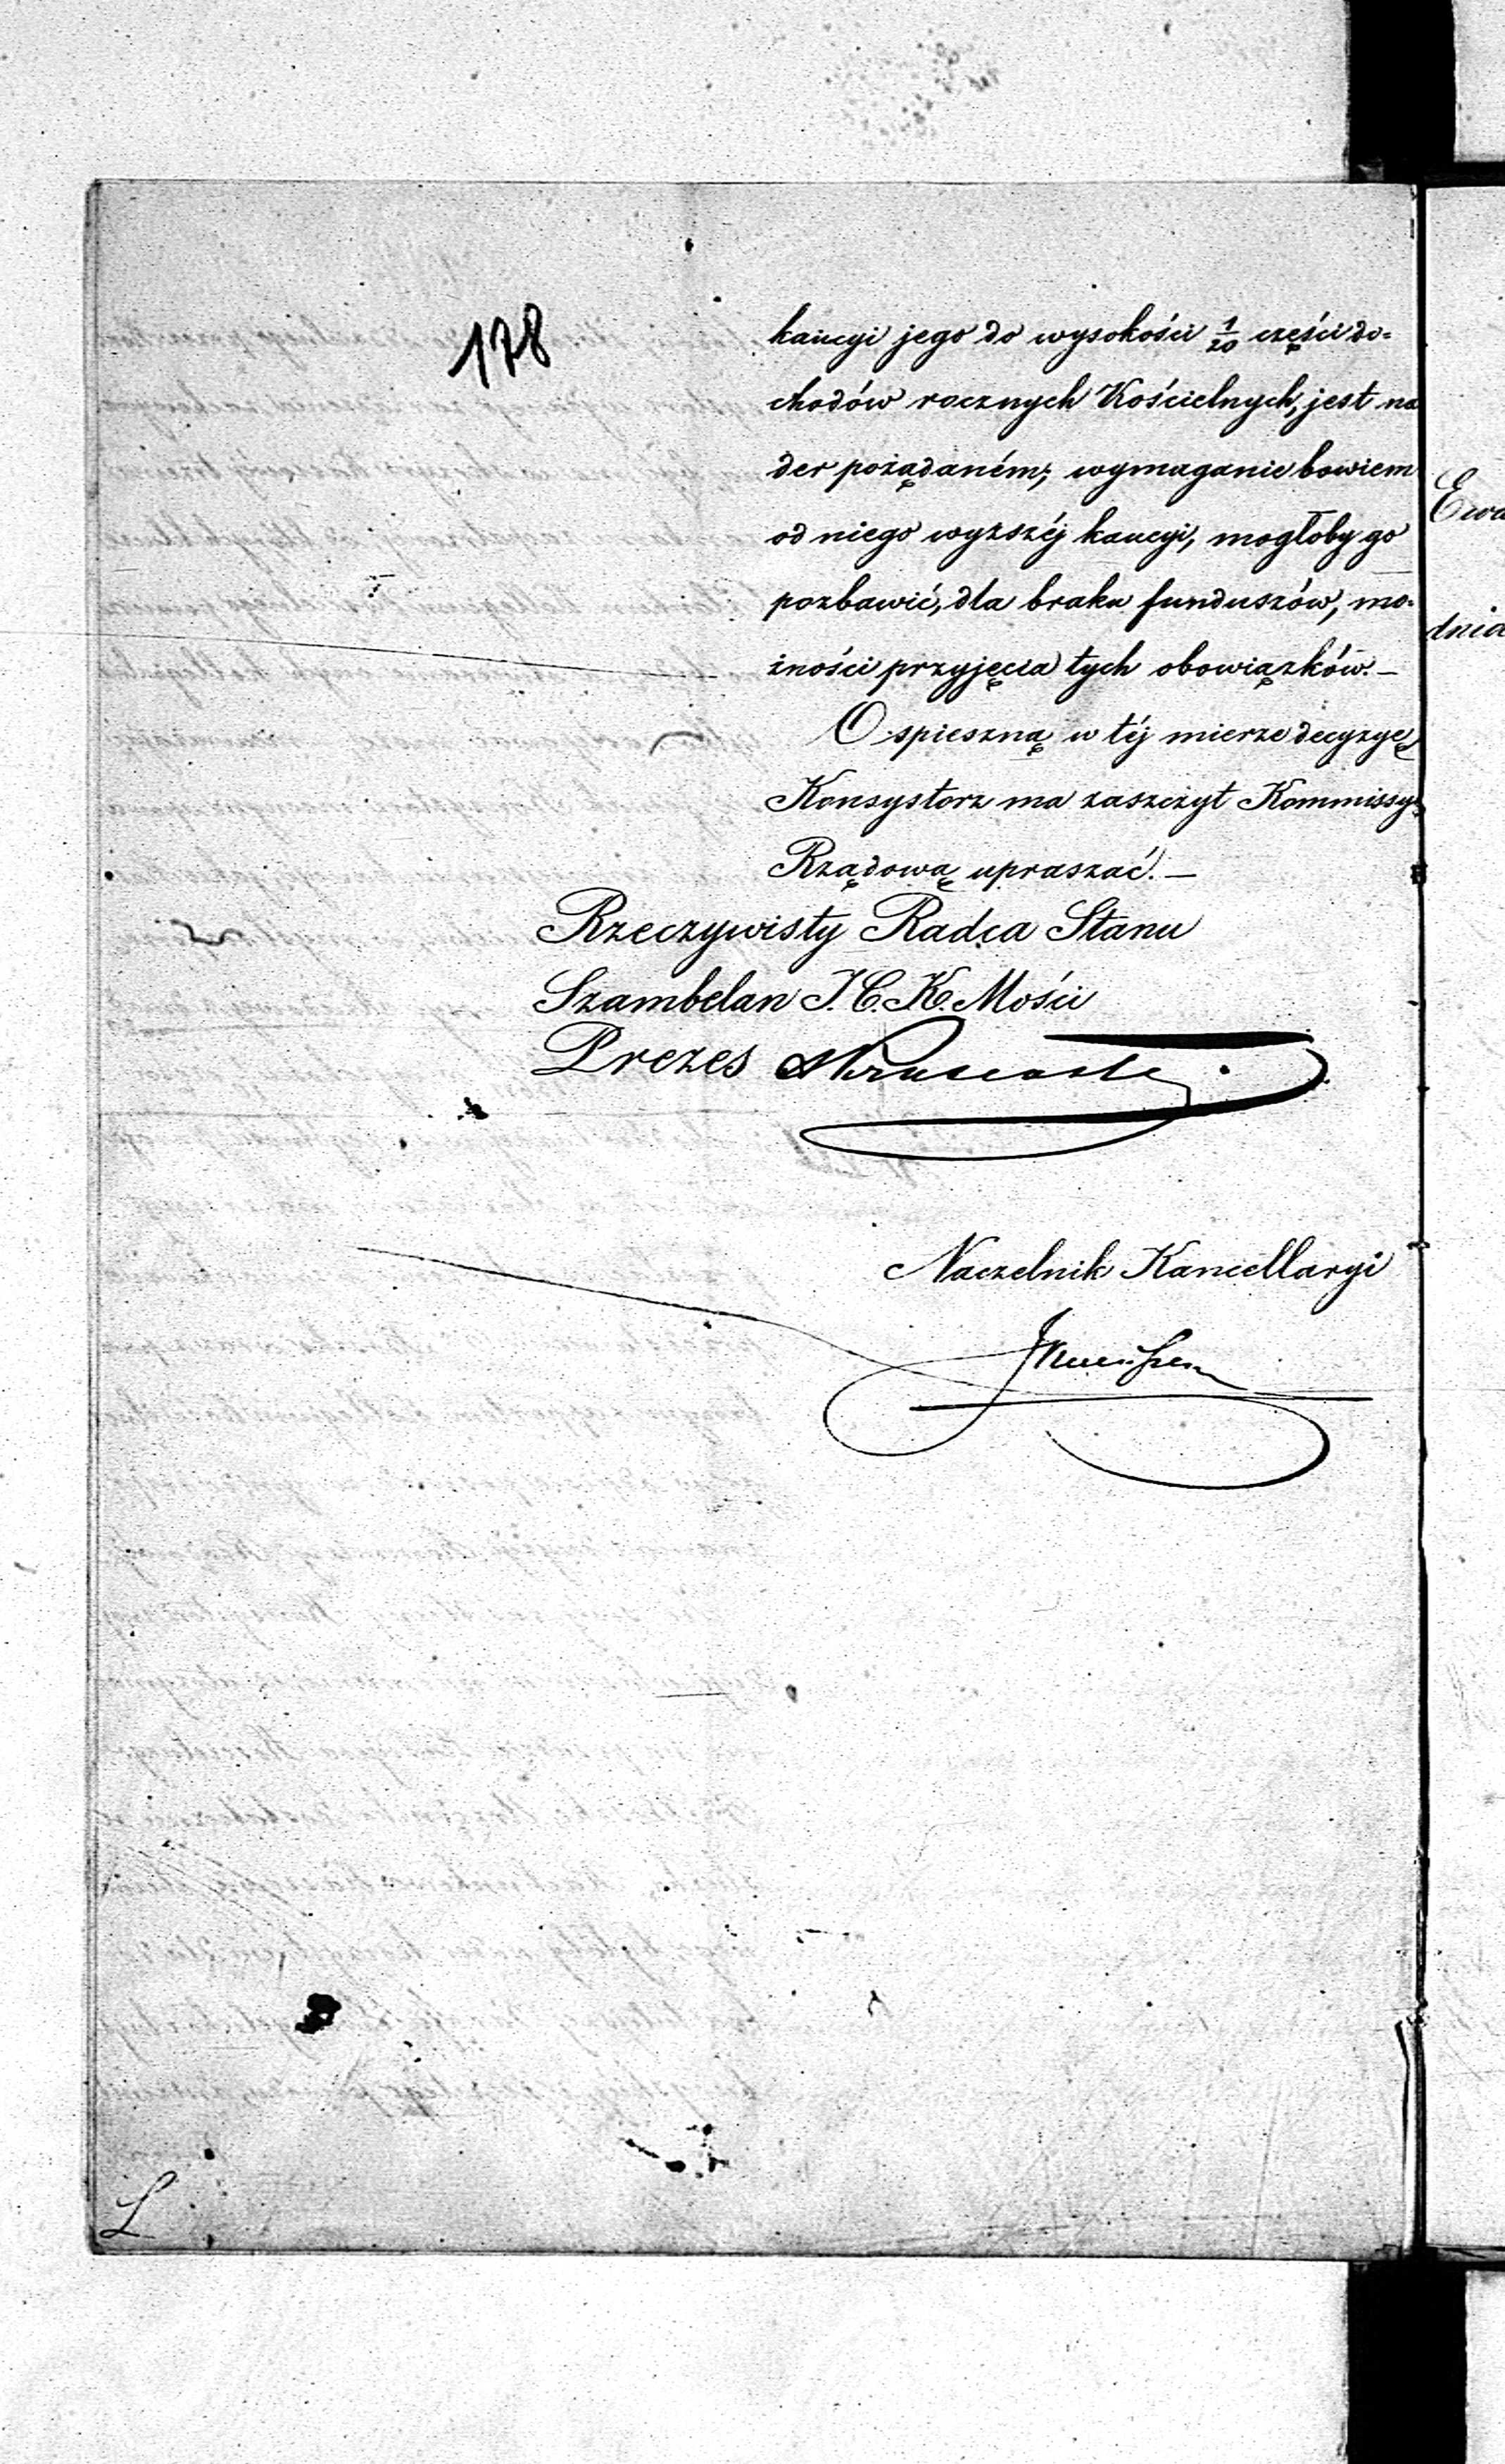 178
kaucyi jego do wysokości 1/20 części do=
chodów rocznych Kościelnych, jest na
der pożądaném; wymaganie bowiem
od niego wyższéj kaucyi, mogłoby go
pozbawić, dla braku funduszów, mo=
żności przyjęcia tych obowiązków. —
O spieszną w téj mierze decyzyę
Konsystorz ma zaszczyt Kommissyą
Rządową upraszać. —
Rzeczywisty Radca Stanu
Szambelan J. C. K. Mości
Prezes
Naczelnik Kancellaryi
L
Ewa
dnia